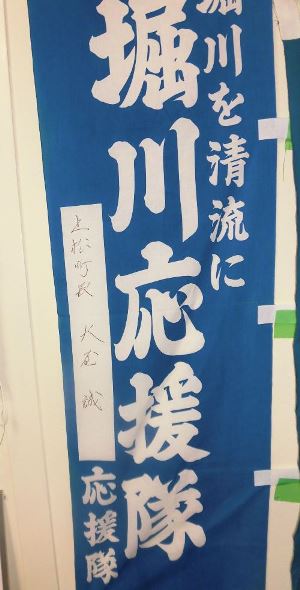 堀川を清流に
堀川応援隊
上松町長 大屋 誠
応援隊